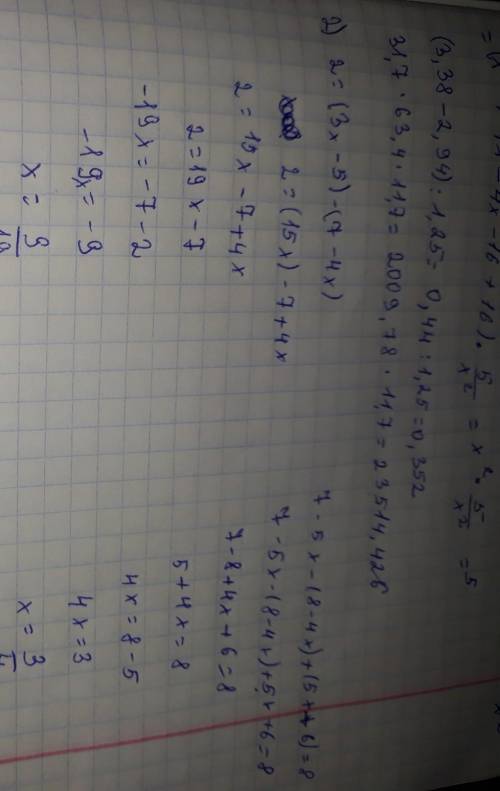 - 4x - 16 + 16) · 5/x² = x² · 5/x² = 5
(3,38 - 2,94) : 1,25 = 0,44 : 1,25 = 0,352
31,7 · 63,4 · 11,7 = 2009,78 · 11,7 = 23514,426
2) 2 = (3x - 5) - (7 - 4x)
2 = (15x) - 7 + 4x
2 = 15x - 7 + 4x
2 = 19x - 7
-19x = -7 - 2
-19x = -9
x = 9/19
7 - 5x - (8 - 4x) + (5x + 6) = 8
7 - 5x - (8 - 4x) + 5x + 6 = 8
7 - 8 + 4x + 6 = 8
5 + 4x = 8
4x = 8 - 5
4x = 3
x = 3/4